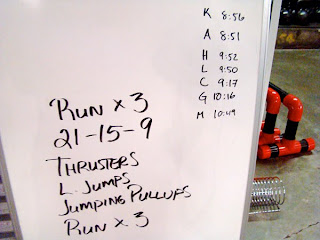 K 8:56
A 8:51
H 9:52
L 9:50
C 9:17
G 10:16
M 10:49
Run x 3
21-15-9
Thrusters
L. Jumps
Jumping Pullups
Run x 3